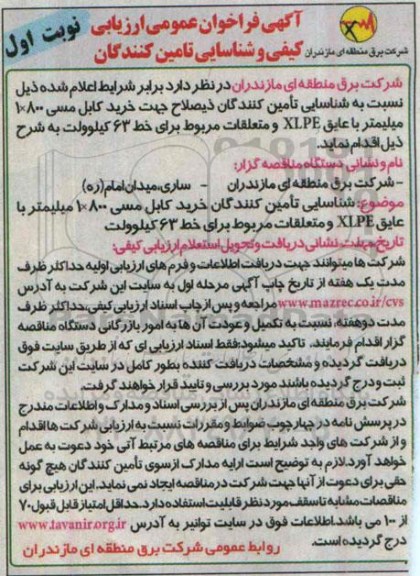 آگهی فراخوان عمومی ارزیابی
کیفی و شناسایی تامین کنندگان
نوبت اول
شرکت برق منطقه ای مازندران
شرکت برق منطقه ای مازندران در نظر دارد برابر شرایط اعلام شده ذیل
نسبت به شناسایی تأمین کنندگان ذیصلاح جهت خرید کابل مسی ۸۰۰*۱
میلیمتر با عایق XLPE و متعلقات مربوط برای خط ۶۳ کیلوولت به شرح
ذیل اقدام نماید.
نام و نشانی دستگاه مناقصه گزار:
- شرکت برق منطقه ای مازندران - ساری، میدان امام (ره)
موضوع: شناسایی تأمین کنندگان خرید کابل مسی ۸۰۰*۱ میلیمتر با
عایق XLPE و متعلقات مربوط برای خط ۶۳ کیلوولت
تاریخ، مهلت، نشانی دریافت و تحویل استعلام ارزیابی کیفی:
شرکت ها میتوانند جهت دریافت اطلاعات و فرم های ارزیابی اولیه حداکثر ظرف
مدت یک هفته از تاریخ چاپ آگهی مرحله اول به سایت این شرکت به آدرس
www.mazrec.co.ir/cvs مراجعه و پس از چاپ اسناد ارزیابی کیفی، حداکثر ظرف
مدت دو هفته، نسبت به تکمیل و عودت آن ها به امور بازرگانی دستگاه مناقصه
گزار اقدام فرمایند. تاکید میشود: فقط اسناد ارزیابی ای که از طریق سایت فوق
دریافت گردیده و مشخصات دریافت کننده بطور کامل در سایت این شرکت
ثبت و درج گردیده باشند مورد بررسی و تایید قرار خواهند گرفت.
شرکت برق منطقه ای مازندران پس از بررسی اسناد و مدارک و اطلاعات مندرج
در پرسش نامه در چهارچوب ضوابط و مقررات نسبت به ارزیابی شرکت ها اقدام
و از شرکت های واجد شرایط برای مناقصه های مرتبط آتی خود دعوت به عمل
خواهد آورد. لازم به توضیح است ارایه مدارک از سوی تأمین کنندگان هیچ گونه
حقی برای دعوت از آنها جهت شرکت در مناقصه ایجاد نمی نماید. این ارزیابی برای
مناقصات مشابه تا سقف مورد نظر قابلیت استفاده دارد. حداقل امتیاز قابل قبول ۷۰
از ۱۰۰ می باشد. اطلاعات فوق در سایت توانیر به آدرس www.tavanir.org.ir
درج گردیده است.
روابط عمومی شرکت برق منطقه ای مازندران